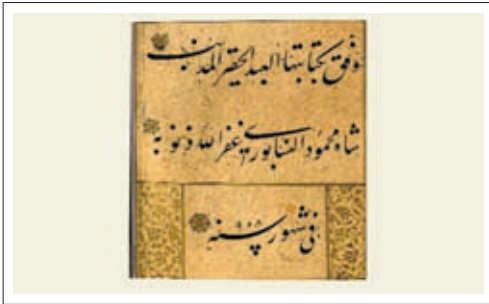 وفق بکتابتها العبد الحقیر المذنب
شاه محمود النیسابوری غفر الله ذنوبه
فی شهور سنه